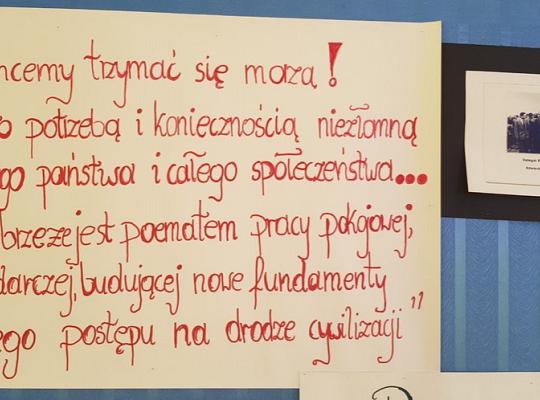 chcemy trzymać się morza!
potrzebą i koniecznością niezłomną
państwa i całego społeczeństwa...
brzeże jest poematem pracy pokojowej,
darczej, budującej nowe fundamenty
ego postępu na drodze cywilizacji"